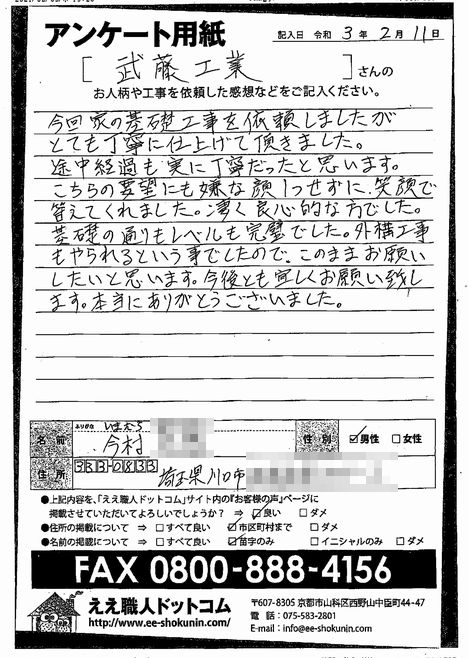 アンケート用紙
記入日 令和 3 年 2 月 11 日
[ 武藤工業 ] さんの
お人柄や工事を依頼した感想などをご記入ください。
今回家の基礎工事を依頼しましたが
とても丁寧に仕上げて頂きました。
途中経過も実に丁寧だったと思います。
こちらの要望にも嫌な顔1つせずに、笑顔で
答えてくれました。凄く良心的な方でした。
基礎の通りもレベルも完璧でした。外構工事
もやられるという事でしたので、このままお願い
したいと思います。今後とも宜しくお願い致し
ます。本当にありがとうございました。
ふりがな いまむら
名前 今村 性別 ☑男性 □女性
住所 333-0833 埼玉県川口市
●上記内容を、「ええ職人ドットコム」サイト内の『お客様の声』ページに
掲載させていただいてよろしいでしょうか？ ⇒ ☑良い □ダメ
●住所の掲載について ⇒ □すべて良い ☑市区町村まで □ダメ
●名前の掲載について ⇒ □すべて良い ☑苗字のみ □イニシャルのみ □ダメ
FAX 0800-888-4156
ええ職人ドットコム
http://www.ee-shokunin.com/
〒607-8305 京都市山科区西野山中臣町44-47
電話：075-583-2801
E-mail：info@ee-shokunin.com